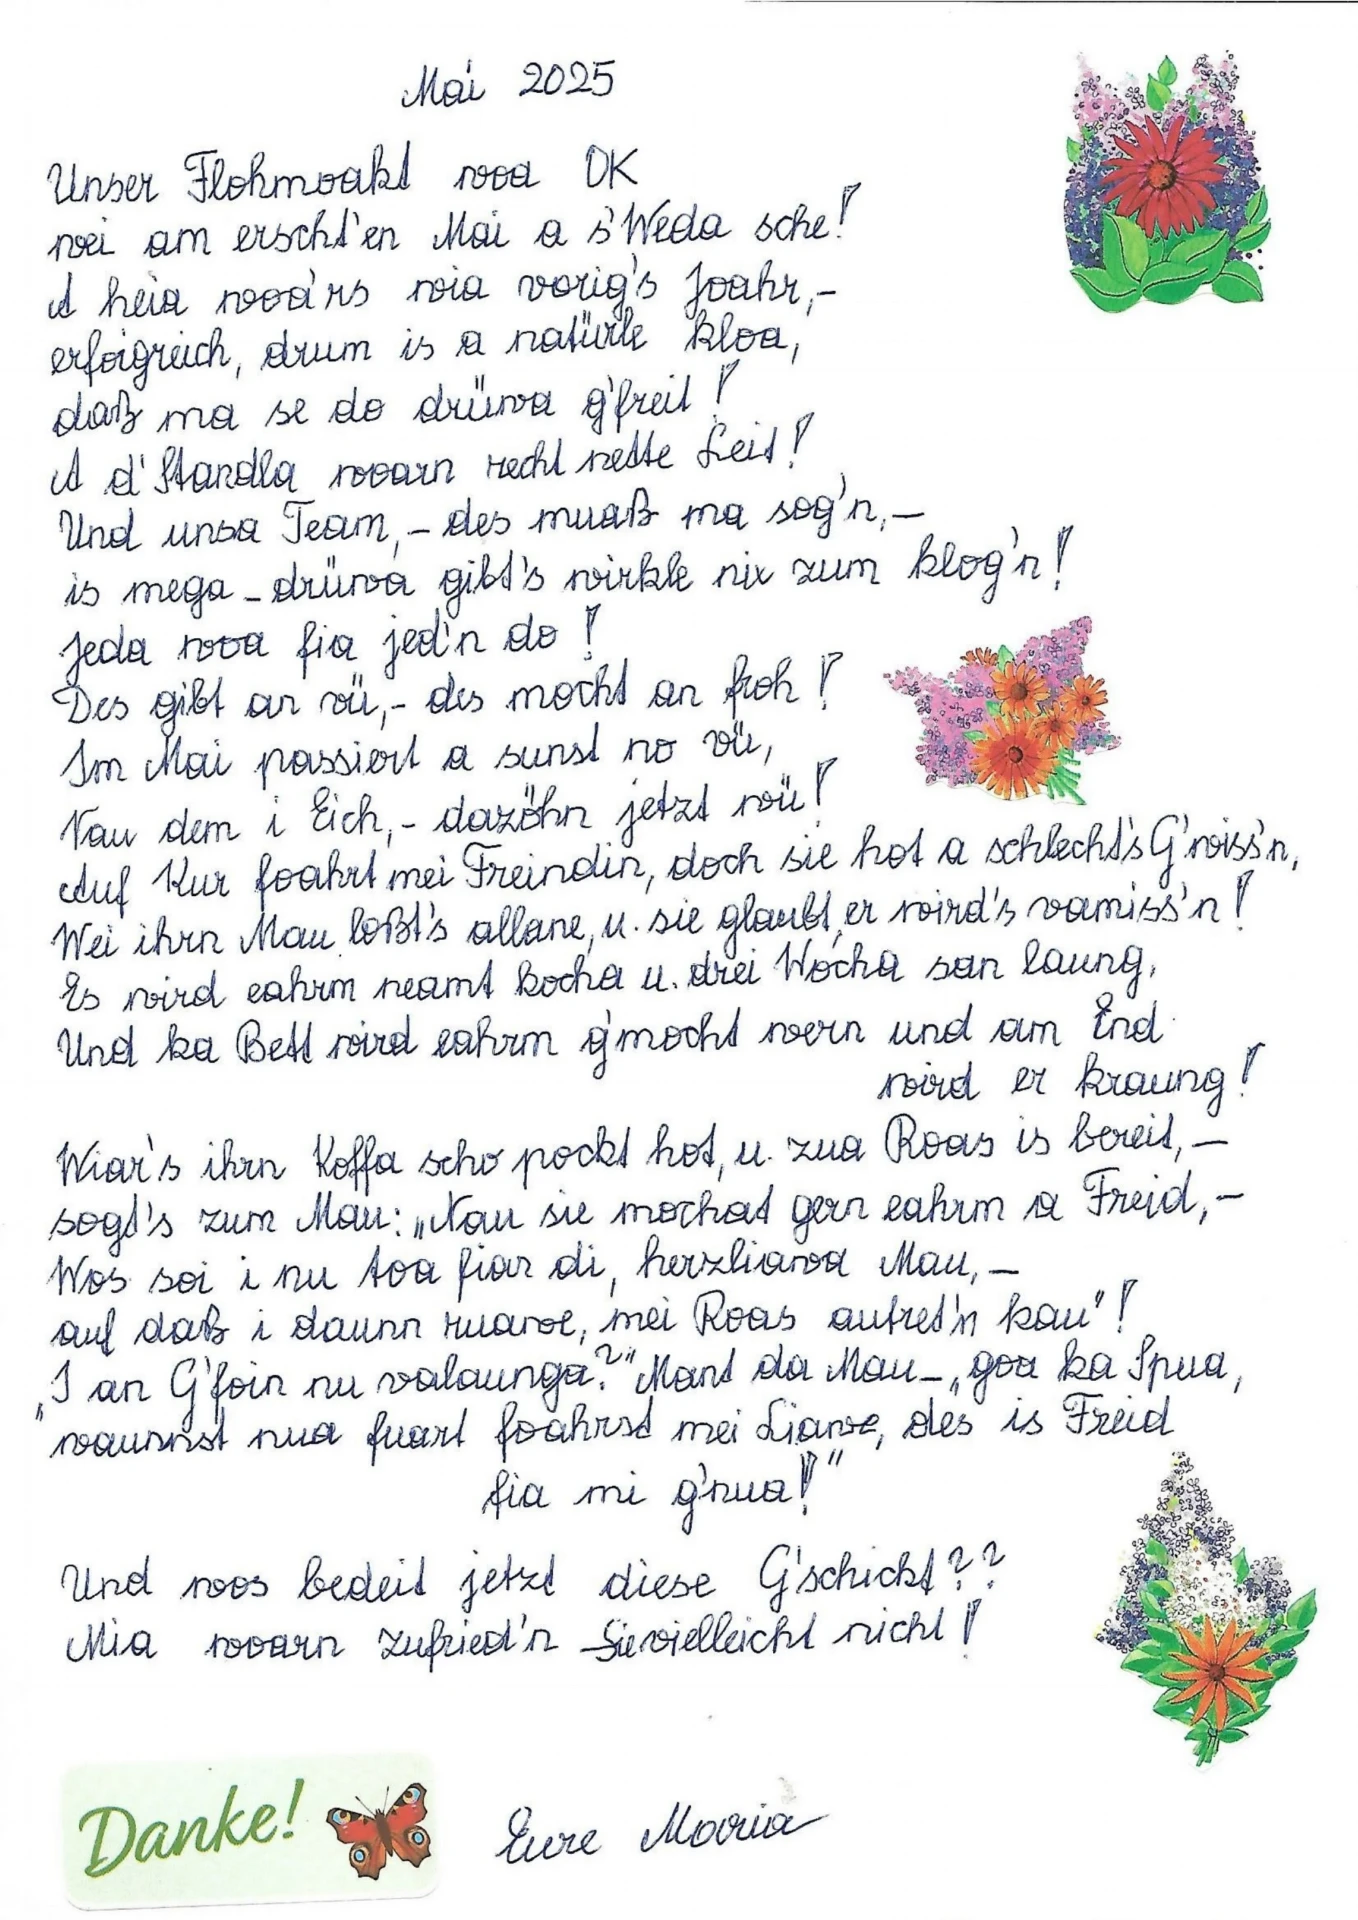 Mai 2025
Unser Flohmoakt woa OK
wei am erscht'en Mai a s'Weda sche!
A heia wooa'rs wia vorig's Joahr,-
erfoigreich, drum is a natürle kloa,
daß ma se do drüwa g'freit!
A d'Standla wooarn recht nette Leit!
Und unsa Team,- des muaß ma sog'n,-
is mega - drüwa gibt's wirkle nix zum klog'n!
Jeda woa fia jed'n do!
Des gibt an vü,- des mocht an froh!
Im Mai passiert a sunst no vü,
Vau dem i Eich,- dazöhn jetzt wü!
Auf Kur foahrt mei Freindin, doch sie hot a schlecht's G'wiss'n,
Wei ihrn Mau loßt's allane, u. sie glaubt, er wird's vamiss'n!
Es wird eahrm neamt kocha u. drei Wocha san laung,
Und ka Bett wird eahrm g'mocht wern und am End
wird er kraung!
Wiar's ihrn Koffa scho pockt hot, u. zua Roas is bereit,-
sogt's zum Mau: "Vau sie mochat gern eahrm a Freid,-
Wos soi i nu toa fiar di, herzliawa Mau,-
auf daß i daunn ruawe, mei Roas autret'n kau"!
"I an G'foin nu valaunga?" Mant da Mau-"goa ka Spua,
waunnst nua fuart foahrst mei Liawe, des is Freid
fia mi g'nua!"
Und wos bedeit jetzt diese G'schicht??
Mia wooarn zufried'n - Sie vielleicht nicht!
Danke!
Eure Maria